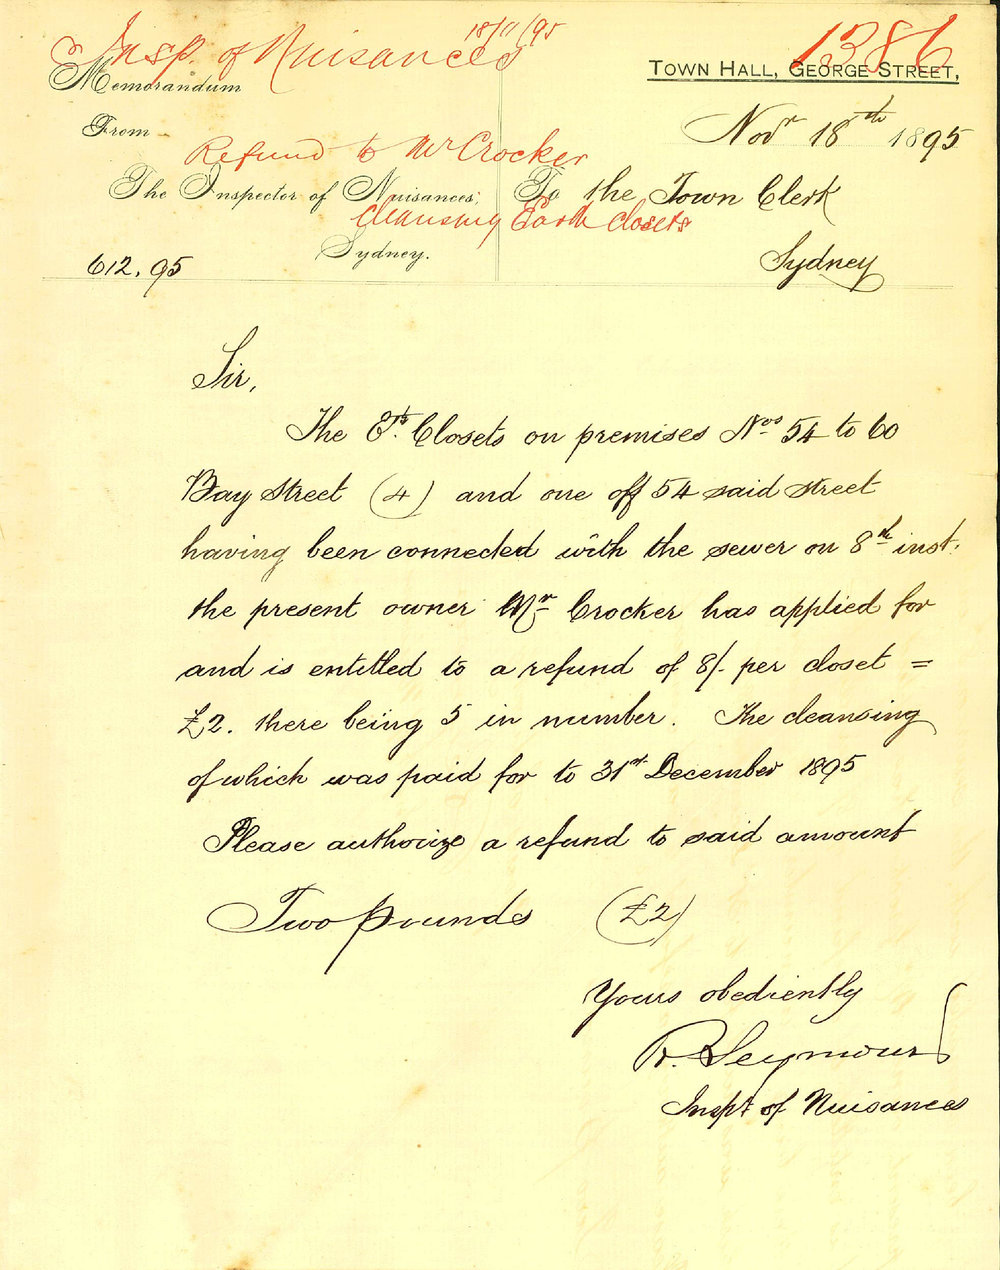 18/11/95
Insp. of Nuisances
1386
Memorandum
TOWN HALL, GEORGE STREET,
From
Novr 18th 1895
Refund to Mr Crocker
The Inspector of Nuisances,
To the Town Clerk
Cleansing Earth Closets
Sydney.
Sydney
612.95
Sir,
The Eth. Closets on premises Nos 54 to 60
Bay Street (4) and one off 54 said street
having been connected with the sewer on 8th inst.
the present owner Mr Crocker has applied for
and is entitled to a refund of 8/- per closet =
£2. there being 5 in number. The cleansing
of which was paid for to 31st December 1895
Please authorize a refund to said amount
Two pounds (£2)
Yours obediently
R. Seymour
Inspt of Nuisances